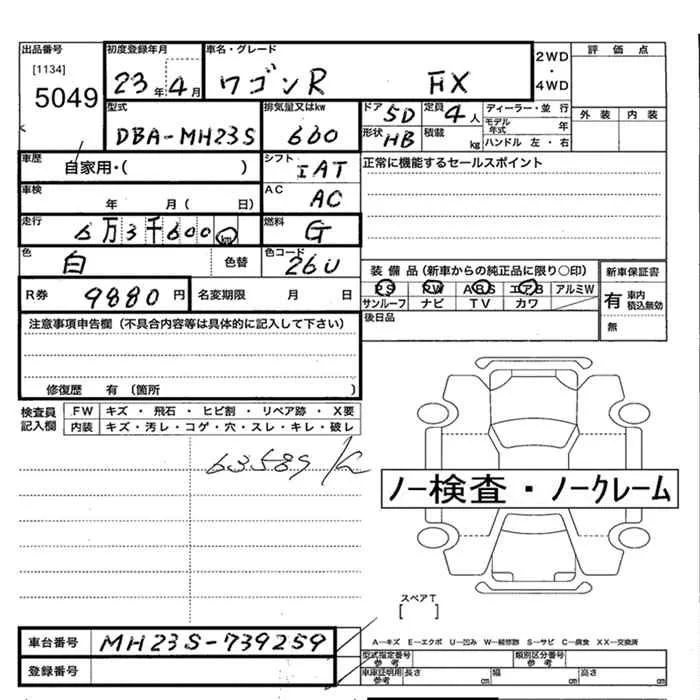 出品番号 初度登録年月 車名・グレード 2WD ・ 4WD 評価点
[1134]
5049 23年4月 ワゴンR FX 外装 内装
型式 排気量又はkw ドア 5D 定員 4人 ディーラー・並行
DBA-MH23S 660 形状 HB 積載 kg モデル年式 年
ハンドル 左・右
車歴 自家用・( ) シフト IAT 正常に機能するセールスポイント
車検 年 月( 日) AC AC
走行 6万3千600km 燃料 G
色 白 色替 色コード 26U
装備品(新車からの純正品に限り○印) 新車保証書
PS PW ABS エアB アルミW 有 車内積込無効
サンルーフ ナビ TV カワ
R券 9880円 名変期限 月 日 後日品 無
注意事項申告欄(不具合内容等は具体的に記入して下さい)
修復歴 有(箇所 )
検査員記入欄 FW キズ・飛石・ヒビ割・リペア跡・X要
内装 キズ・汚レ・コゲ・穴・スレ・キレ・破レ
63589 K
ノー検査・ノークレーム
スペアT
[ ]
車台番号 MH23S-739259
A-キズ E-エクボ U-凹み W-補修跡 S-サビ C-腐食 XX-交換済
登録番号
型式指定番号 参考 類別区分番号 参考
車庫証明用 参考 長さ cm 幅 cm 高さ cm